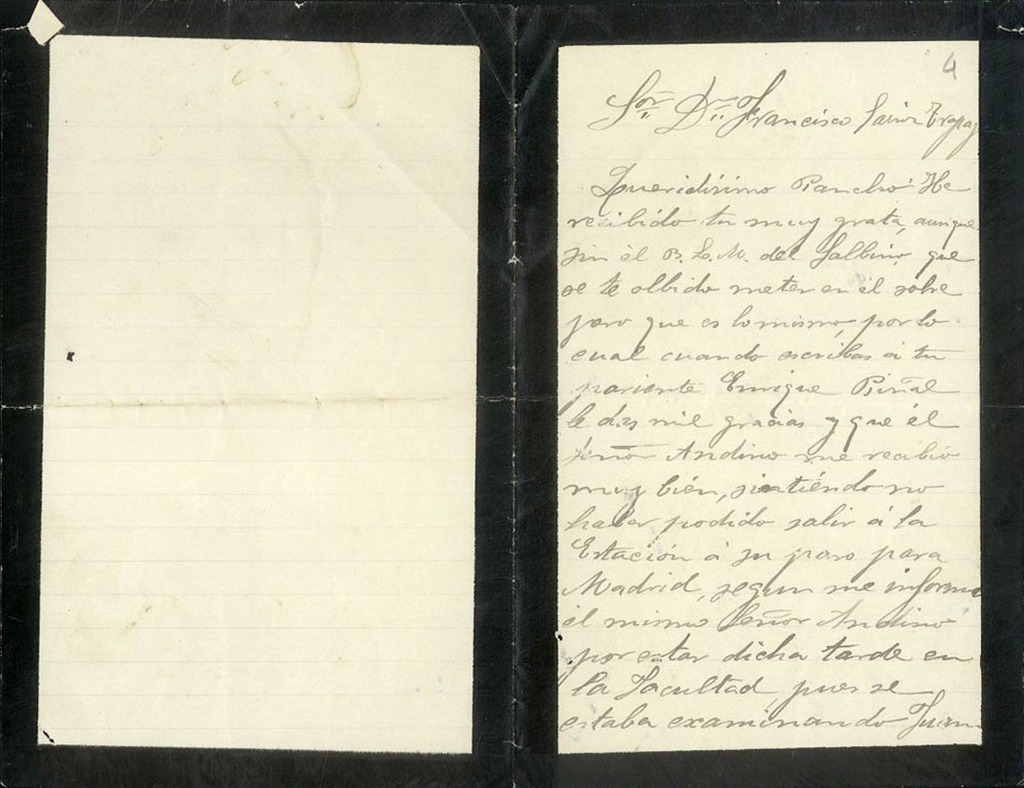 4
Sor. Dn. Francisco Sainz
Queridísimo Pancho: He
recibido tu muy grata, aunque
sin él B. L. M. del Galbino, que
se te olbido meter en él sobre
pero que es lo mismo, por lo
cual cuando escribas á tu
pariente Enrique Piñal
le das mil gracias y que él
Andino me recibió
muy bién, sintiéndo no
haber podido salir á la
Estación á su paso para
Madrid, segun me informó
él mismo Señor Andino
por estar dicha tarde en
la Facultad pues se
estaba examinando Juan